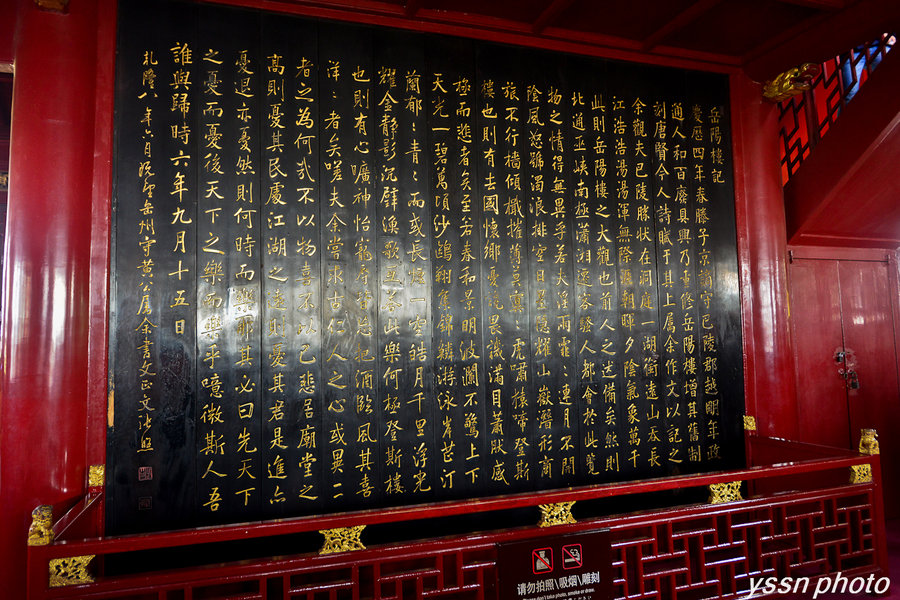 岳陽樓記
慶歷四年春滕子京謫守巴陵郡越明年政
通人和百廢具興乃重修岳陽樓增其舊制
刻唐賢今人詩賦于其上屬余作文以記之
余觀夫巴陵勝狀在洞庭一湖銜遠山吞長
江浩浩湯湯渾無際涯朝暉夕陰氣象萬千
此則岳陽樓之大觀也前人之述備矣然則
北通巫峽南極瀟湘遷客騷人都會於此覽
物之情得無異乎若夫淫雨霏〻連月不開
陰風怒號濁浪排空日星隱耀山嶽潛形商
旅不行檣傾檝摧薄暮冥〻虎嘯猿啼登斯
樓也則有去國懷鄉憂讒畏譏滿目蕭然感
極而悲者矣至若春和景明波瀾不驚上下
天光一碧萬頃沙鷗翔集錦鱗游泳岸芷汀
蘭郁〻青〻而或長煙一空皓月千里浮光
耀金靜影沉璧漁歌互答此樂何極登斯樓
也則有心曠神怡寵辱皆忘把酒臨風其喜
洋〻者矣嗟夫余嘗求古仁人之心或異二
者之為何哉不以物喜不以己悲居廟堂之
高則憂其民處江湖之遠則憂其君是進亦
憂退亦憂然則何時而樂耶其必曰先天下
之憂而憂後天下之樂而樂乎噫微斯人吾
誰與歸時六年九月十五日
乾隆八年六月岳州守黃公屬余書文正文張照
请勿拍照\吸烟\雕刻
Please don't take photo, smoke or draw.
yssn photo